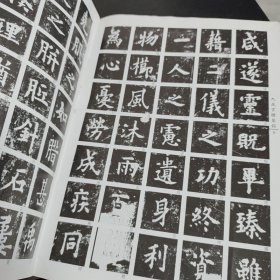 咸遂靈貺畢臻雖
藉二儀之功終資
一人之慮遺身利
物櫛風沐雨百
為心憂勞成疾同
肌之如腊甚禹
之胼胝針石屢